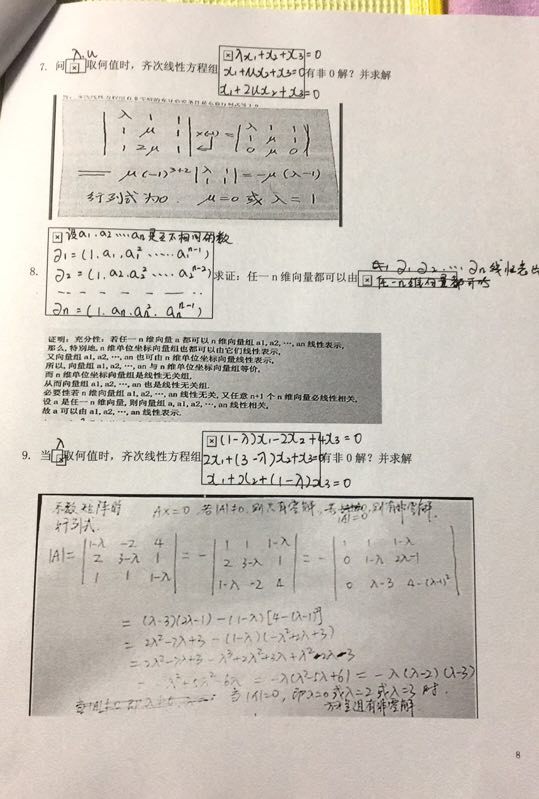 λ, u
7. 问 取何值时，齐次线性方程组 有非0解？并求解
λx₁+x₂+x₃=0
x₁+ux₂+x₃=0
x₁+2ux₂+x₃=0
|λ 1 1|
|1 μ 1|
|1 2μ 1|
=
|λ 1 1|
|1 μ 1|
|0 μ 0|
= μ(-1)³⁺² |λ 1; 1 1| = -μ(λ-1)
行列式为0. μ=0 或 λ=1
设a₁.a₂…aₙ是互不相同的数
∂₁=(1.a₁.a₁²……a₁ⁿ⁻¹)
8. ∂₂=(1.a₂.a₂²……a₂ⁿ⁻²) 求证：任一n维向量都可以由 ∂₁ ∂₂ … ∂n 线性表出
∂n=(1.an.an². anⁿ⁻¹)
证明：充分性：若任一n维向量a都可以n维向量组a1,a2,…,an线性表示,
那么,特别地,n维单位坐标向量组也都可以由它们线性表示,
又向量组a1,a2,…,an也可由n维单位坐标向量线性表示,
所以,向量组a1,a2,…,an与n维单位坐标向量组等价,
而n维单位坐标向量组是线性无关组.
从而向量组a1,a2,…,an也是线性无关组.
必要性若n维向量组a1,a2,…,an线性无关,又任意n+1个n维向量必线性相关,
设a是任一n维向量,则向量组a,a1,a2,…,an线性相关,
故a可以由a1,a2,…,an线性表示.
λ
9. 当 取何值时，齐次线性方程组 有非0解？并求解
(1-λ)x₁-2x₂+4x₃=0
2x₁+(3-λ)x₂+x₃=0
x₁+x₂+(1-λ)x₃=0
系数矩阵的 AX=0 若|A|≠0,则只有零解, 若|A|=0,则有非零解.
行列式
|A|=
|1-λ -2 4|
|2 3-λ 1|
|1 1 1-λ|
= -
|1 1 1-λ|
|2 3-λ 1|
|1-λ -2 4|
= -
|1 1 1-λ|
|0 1-λ 2λ-1|
|0 λ-3 4-(λ-1)²|
= (λ-3)(2λ-1)-(1-λ)[4-(λ-1)²]
= 2λ²-7λ+3-(1-λ)(-λ²+2λ+3)
= 2λ²-7λ+3-λ³+2λ²+3λ+λ²-2λ-3
= -λ³+5λ²-6λ = -λ(λ²-5λ+6) = -λ(λ-2)(λ-3)
当|A|=0, 即λ=0或λ=2或λ=3时.
方程组有非零解
8